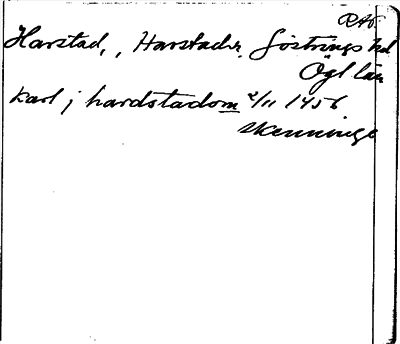 RAP.
Harstad, Harstads, Göstrings hd
Ögl län
karl j hardstadom 2/11 1456
Skenninge